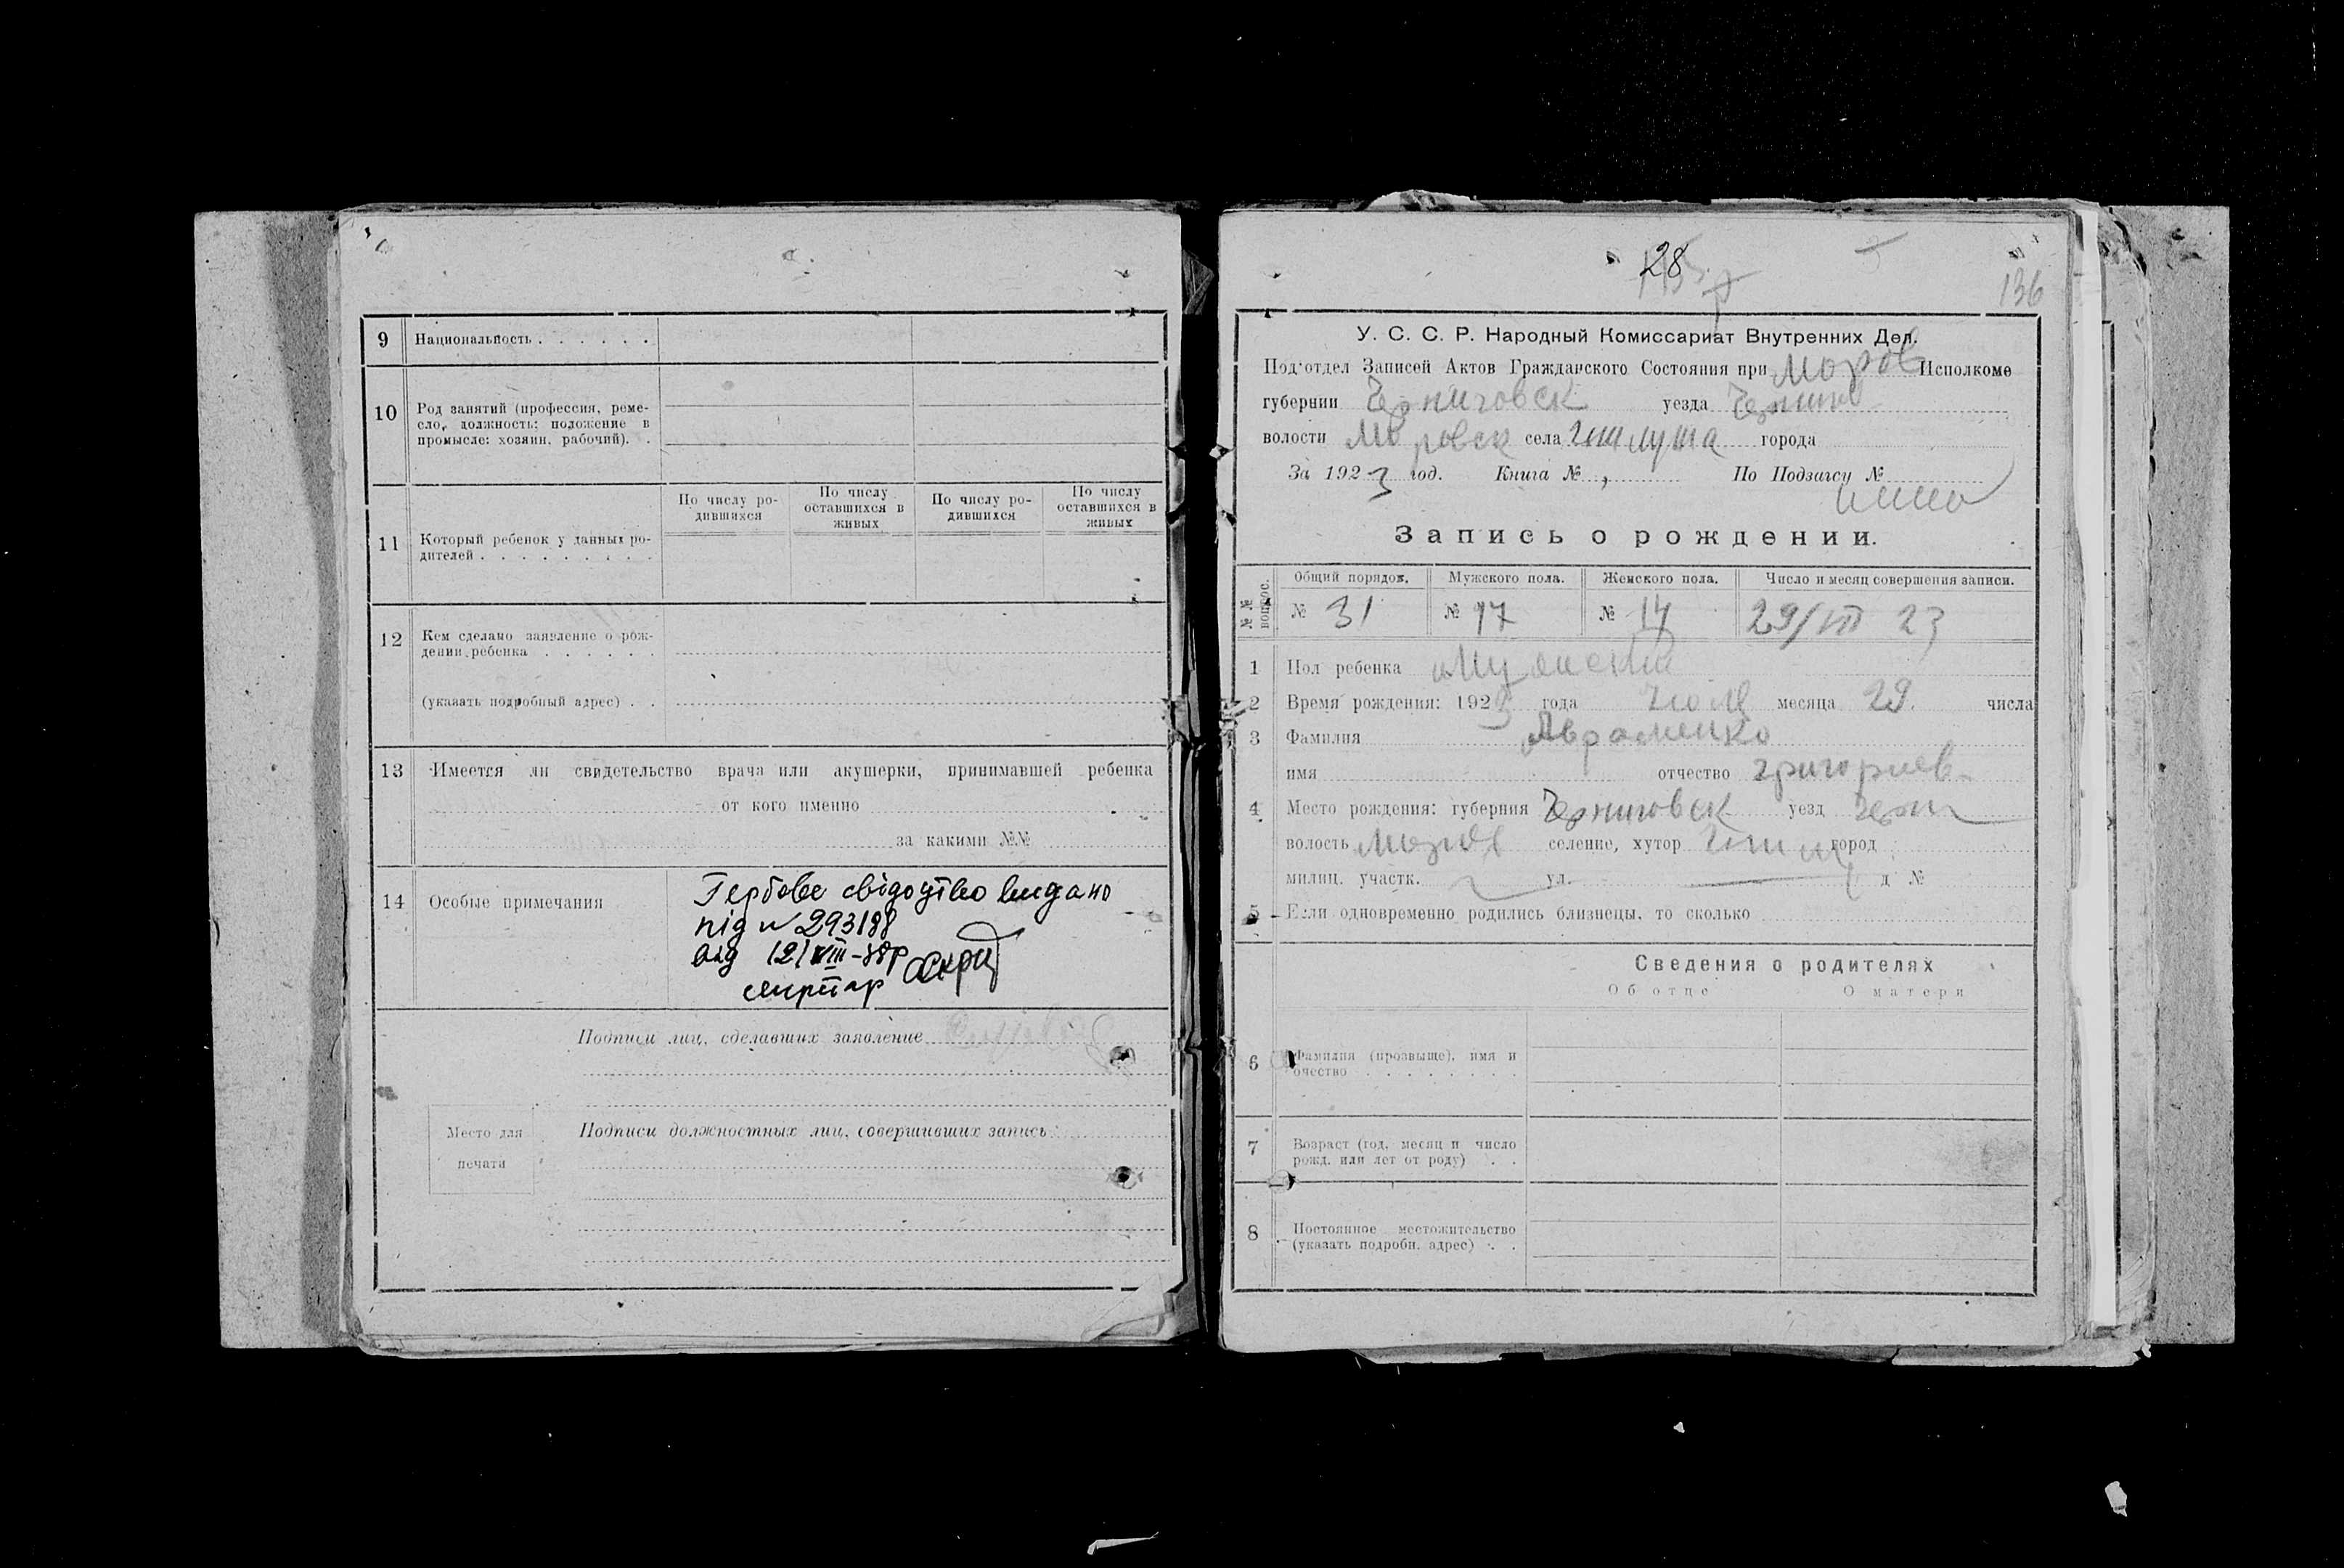 9 Национальность . . . . . .
10 Род занятий (профессия, реме-
сло, должность: положение в
промысле: хозяин, рабочий). .
11 Который ребенок у данных ро-
дителей . . . . . . . . .
По числу ро-
дившихся
По числу
оставшихся в
живых
По числу ро-
дившихся
По числу
оставшихся в
живых
12 Кем сделано заявление о рож-
дении ребенка . . . . . .
(указать подробный адрес) . .
13 Имеется ли свидетельство врача или акушерки, принимавшей ребенка
от кого именно
за какими №№
14 Особые примечания
Гербове свідоцтво видано
під № 293188
від 121 VIII-38р
секретар
Подписи лиц, сделавших заявление
Место для
печати
Подписи должностных лиц, совершивших запись
28
136
У. С. С. Р. Народный Комиссариат Внутренних Дел.
Подотдел Записей Актов Гражданского Состояния при Моров Исполкоме
губернии Черниговск уезда Черниго
волости Моровск села города
За 1923 год. Книга № По Подзагсу №
Запись о рождении.
№№ вопрос.
Общий порядок. Мужского пола. Женского пола. Число и месяц совершения записи.
№ 31 № 17 № 14 29/VII 23
1 Пол ребенка Мужский
2 Время рождения: 1923 года Июля месяца 29 числа
3 Фамилия Авраменко
имя отчество Григориев
4 Место рождения: губерния Черниговск уезд Черн
волость Моров селение, хутор город
милиц. участк. ул. д №
5 Если одновременно родились близнецы, то сколько
Сведения о родителях
Об отце О матери
6 Фамилия (прозвыще), имя и
очество . . . . . . . .
7 Возраст (год, месяц и число
рожд. или лет от роду) . .
8 Постоянное местожительство
(указать подробн. адрес) . .